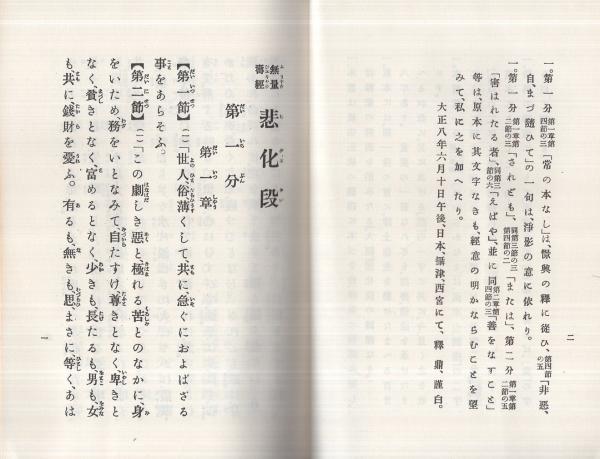 一。第一分第一章第四節の三「常の本なし」は、憬興の釋に從ひ、第四節の五「非惡、
自、まづ隨ひて」の一句は、淨影の意に依れり。
一。第一分第一章第二節の三「されども」、同第三節の三第四節の二「または」、第二分第一章第二節の五
「害はれたる者」、同第三節の六「えばや」、並に同第二章第四節の三「善をなすこと」
等は、原本に其文字なきも、經意の明かならむことを望
みて、私に之を加へたり。
大正八年六月十日午後、日本、攝津西宮にて、釋 鼎、謹白。
二
無量壽經 悲化段
第一分
第一章
【第一節】 (一)「世人、俗、薄くして、共に、急ぐにおよばざる
事をあらそふ。
【第二節】 (一)「この劇しき惡と、極れる苦とのなかに、身
をいため務をいとなみて、自たすけ、尊きとなく、卑きと
なく、貧きとなく、富めるとなく、少きも、長たるも、男も、女
も、共に、錢財を憂ふ。有るも、無きも、思、まさに、等く、あは
一